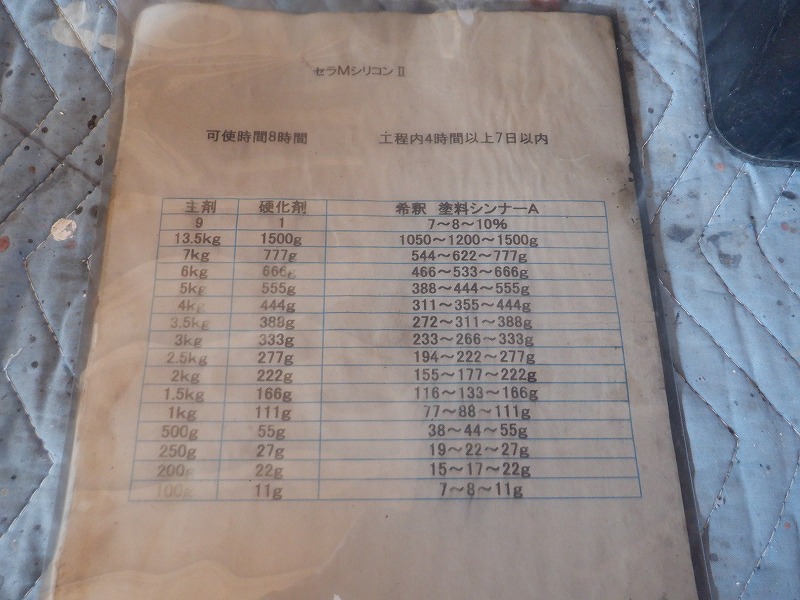 セラMシリコンⅡ
可使時間8時間 工程内4時間以上7日以内
主剤 硬化剤 希釈 塗料シンナーA
9 1 7～8～10%
13.5kg 1500g 1050～1200～1500g
7kg 777g 544～622～777g
6kg 666g 466～533～666g
5kg 555g 388～444～555g
4kg 444g 311～355～444g
3.5kg 388g 272～311～388g
3kg 333g 233～266～333g
2.5kg 277g 194～222～277g
2kg 222g 155～177～222g
1.5kg 166g 116～133～166g
1kg 111g 77～88～111g
500g 55g 38～44～55g
250g 27g 19～22～27g
200g 22g 15～17～22g
100g 11g 7～8～11g